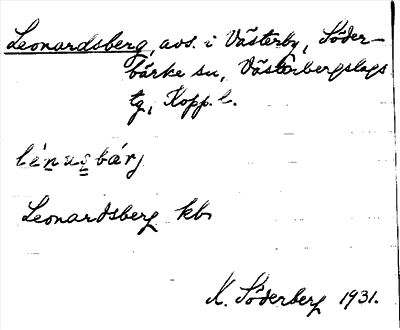 Leonardsberg, avs. i Västerby, Söder-
bärke sn, Västerbergslags
tg, Kopp. l.
lénusbárj
Leonardsberg kb
K. Söderberg 1931.